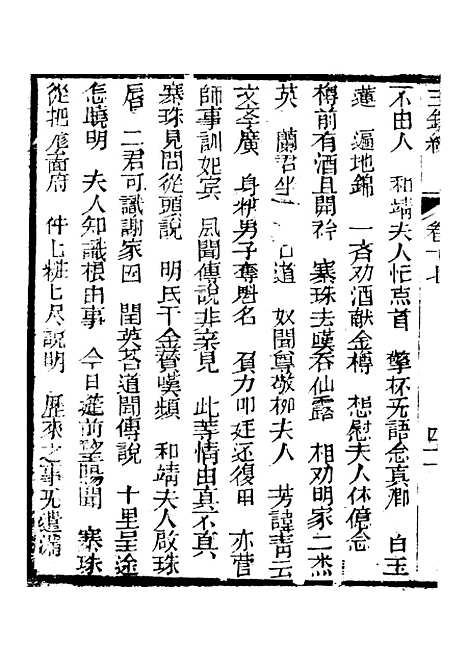 玉釧緣 卷十七 四二
不由人 和靖夫人忙点首 擎杯无語念真郎 白玉
蓮 遍地錦 一斉劝酒献金樽 想慰夫人休億念
樽前有酒且開 寨珠去嘆呑仙露 相劝明家二杰
英 蘭君坐 道 奴聞尊敬柳夫人 芳諱青云
文才廣 身 男子奪魁名 力叩廷还復甲 亦管
師事訓妃宾 風聞傳說非亲見 此等情由真不真
寨珠見問從頭說 明氏千金賛嘆頻 和靖夫人啟珠
唇 二君可識謝家因 閏英荅道聞傳說 十里呈途
怎曉明 夫人知識根由事 今日從前望賜聞 寨珠
從把 面府 件上粧上尽說明 歷來之事无遺漏